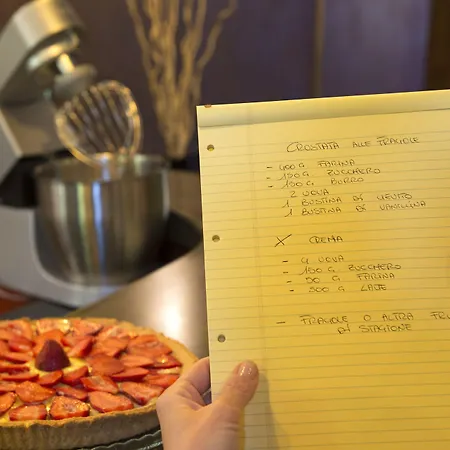 CROSTATA ALLE FRAGOLE
- 400 G FARINA
- 150 G ZUCCHERO
- 150 G BURRO
2 UOVA
1 BUSTINA DI LIEVITO
1 BUSTINA DI VANILLINA
X CREMA
- 4 UOVA
- 150 G ZUCCHERO
- 50 G FARINA
- 500 G LATTE
- FRAGOLE O ALTRA FRU
DI STAGIONE